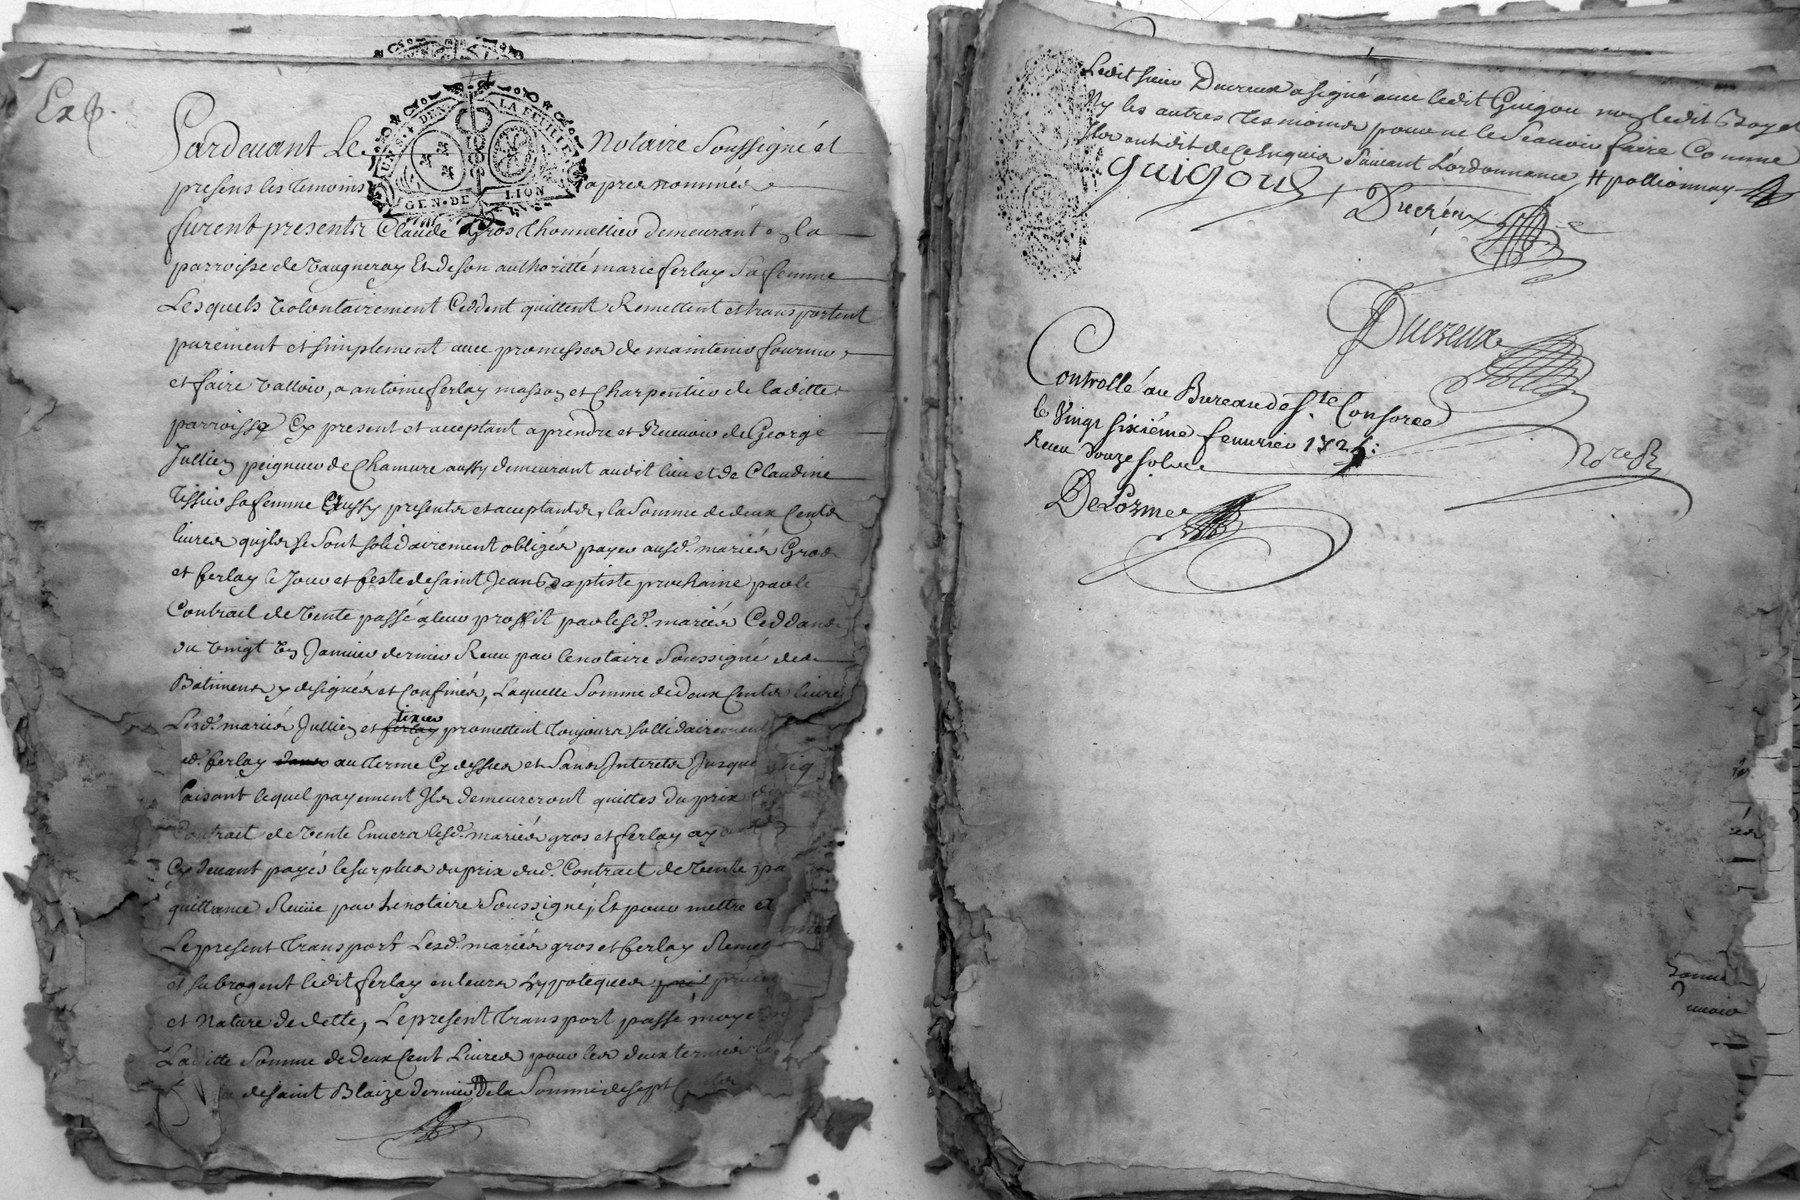 Exp.
UN S. 4 DEN. LA FEUILLE
GEN. DE LION
Pardevant Le Notaire Soussigné et
presens les temoins apres nommés
furent presents Claude Gros thonnellier demeurant en la
parroisse de Vaugneray Et de son authoritté marie ferlay sa femme
Lesquels volontairement Ceddent quittent Remettent et transportent
purement et simplement avec promesses de maintenir fournir
et faire valloir, a antoine ferlay masson et Charpentier de laditte
parroisse Cy present et acceptant a prendre et Recevoir de George
Jullien peigneur de Chamure aussy demeurant audit lieu et de Claudine
tissier sa femme aussy presents et acceptants, la Somme de deux Cents
livres quils se sont solidairement obligés payer ausd. mariés Gros
et ferlay le Jour et feste de saint Jean Baptiste prochaine par le
Contrait de vente passé a leur proffit par lesd. mariés Ceddans
du vingt un Janvier dernier Receu par le notaire Soussigné de
Batiments y designés et Confinés, Laquelle Somme de deux Cents livres
Lesd. mariés Jullien et ferlay tixier promettent toujours sollidairement
ed. ferlay dans au terme Cy dessus et sans Interets Jusque
faisant lequel payement Ils demeureront quittes du prix du
Contrait de vente Envers lesd. mariés gros et ferlay ayant
Cy devant payés le surplus du prix dud. Contrait de vente pa
quittance Receue par Le notaire Soussigné; Et pour mettre et
Le present transport Lesd. mariés gros et ferlay Remet
et subrogent ledit ferlay en leurs hypoteques
et Nature de dette, Le present transport passé moye
Laditte Somme de deux Cent Livres pour les deux termes
de saint Blaize dernier de la Somme de sept
Ledit sieur Ducreux a signé avec ledit Guigou non ledit Bayet
Ny les autres tesmoins pour ne le Scavoir faire Comme
Ils ont dit de ce Enquis Suivant L'ordonnance, # pollionnay
guigou
Ducreux
Ducreux
Nore Rl
Controllé au Bureau de Ste Consorce
le vingt sixième fevrier 172
Receu douze sols
De Lorme